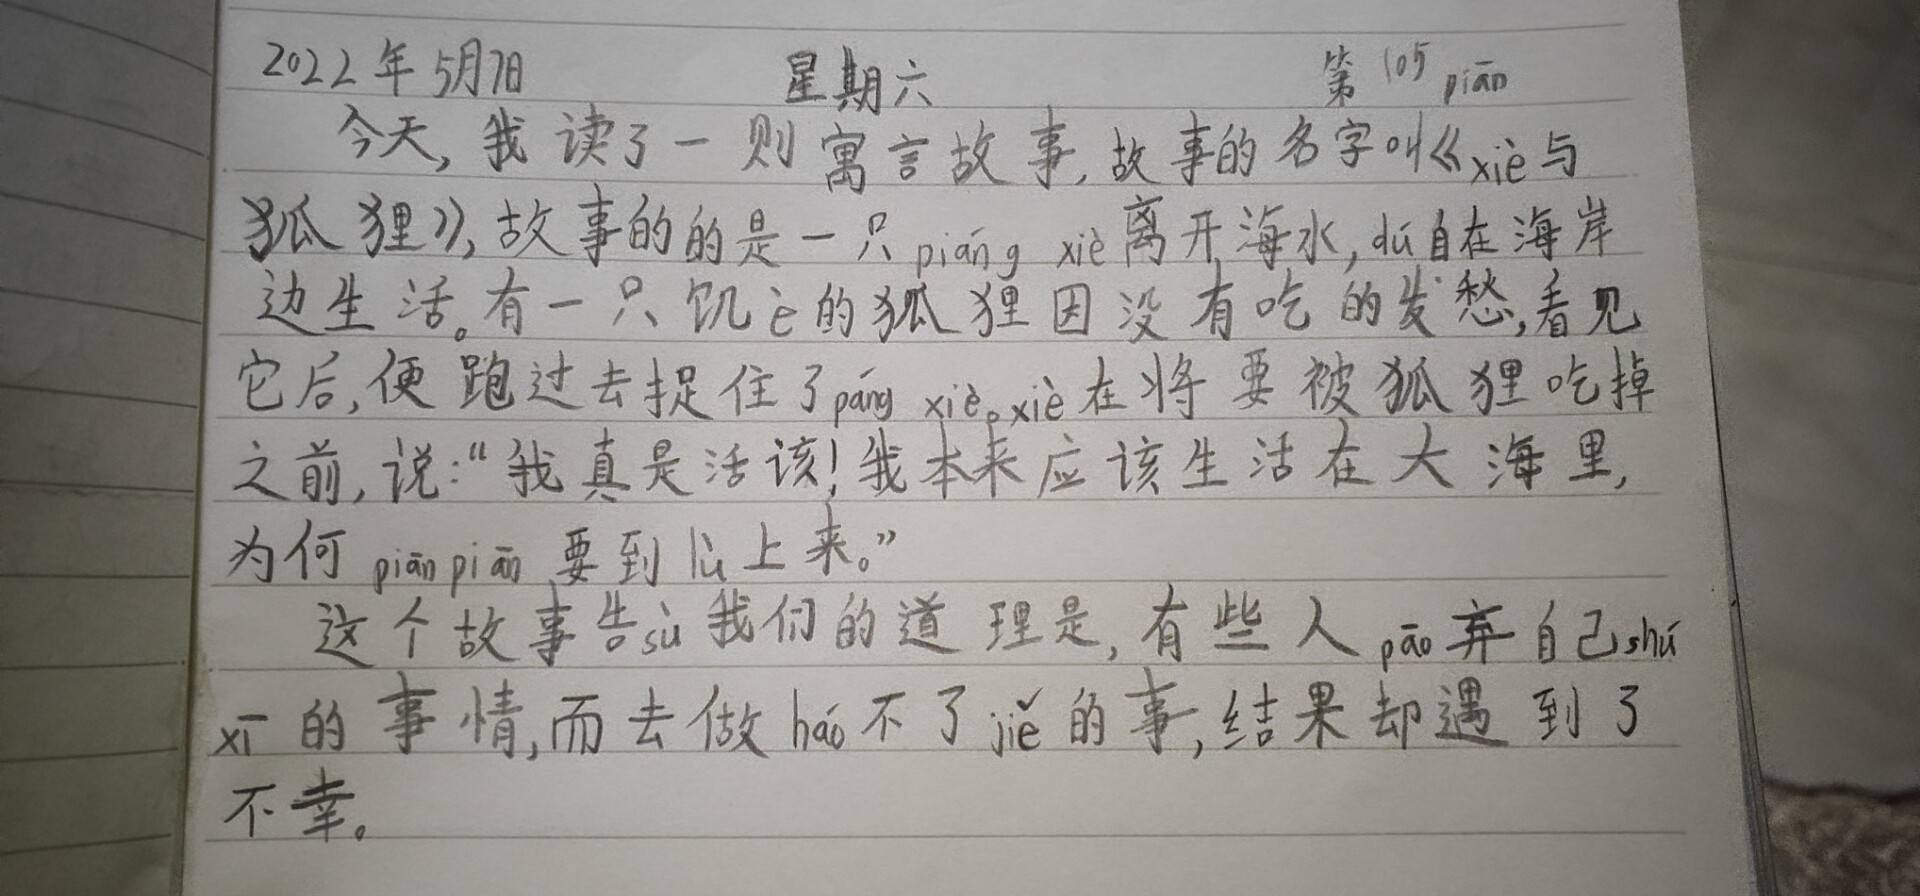 2022年5月7日 星期六 第105 piān
今天,我读了一则寓言故事,故事的名字叫《xiè与
狐狸》,故事的的是一只piáng xiè离开海水,dú自在海岸
边生活。有一只饥è的狐狸因没有吃的发愁,看见
它后,便跑过去捉住了páng xiè。xiè在将要被狐狸吃掉
之前,说:“我真是活该!我本来应该生活在大海里,
为何piānpiān要到lù上来。”
这个故事告sù我们的道理是,有些人pāo弃自己shú
xī的事情,而去做háo不了jiě的事,结果却遇到了
不幸。